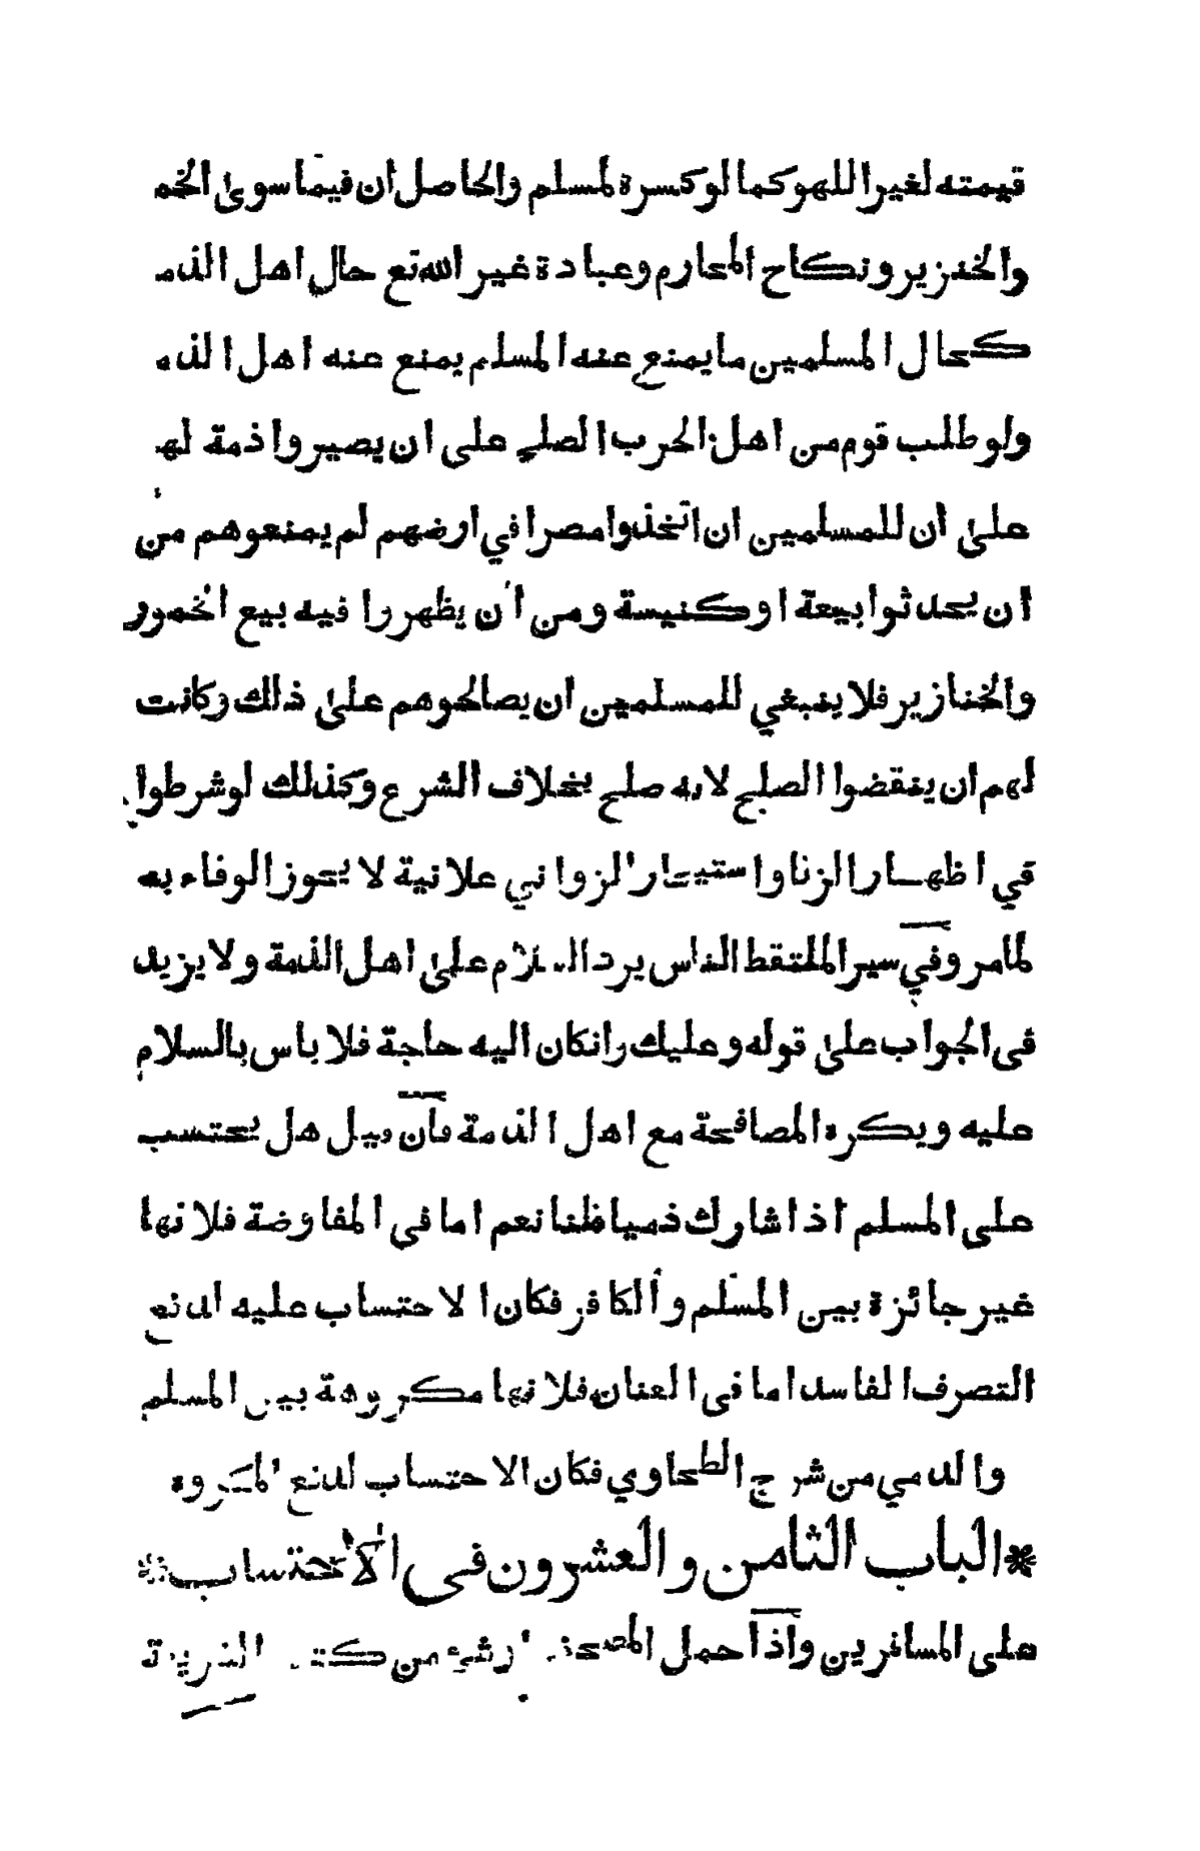 قيمته لغير اللهو كما لو كسره لمسلم والحاصل ان فيما سوى الخم
والخنزير ونكاح المحارم وعبادة غير الله تع حال اهل الذم
كحال المسلمين ما يمنع عنه المسلم يمنع عنه اهل الذم
ولو طلب قوم من اهل الحرب الصلح على ان يصيروا ذمة له
على ان للمسلمين ان اتخذوا مصرا في ارضهم لم يمنعوهم من
ان يحدثوا بيعة او كنيسة ومن ان يظهروا فيه بيع الخمور
والخنازير فلا ينبغي للمسلمين ان يصالحوهم على ذلك وكانت
لهم ان ينقضوا الصلح لانه صلح بخلاف الشرع وكذلك لو شرطوا
في اظهار الزنا و الزواني علانية لا يجوز الوفاء به
لمامر وفي سير الملتقط الناس يرد السلام على اهل الذمة ولا يزيد
فى الجواب على قوله وعليك وانكان اليه حاجة فلا باس بالسلام
عليه ويكره المصافحة مع اهل الذمة فان قيل هل يحتسب
على المسلم اذا شارك ذميا قلنا نعم اما في المفاوضة فلانها
غير جائزة بين المسلم والكافر فكان الاحتساب عليه لدفع
التصرف الفاسد اما فى العنان فلانها مكروهة بين المسلم
والذمي من شرح الطحاوي فكان الاحتساب لدفع المكروه
*الباب الثامن والعشرون فى الاحتساب*
على المسافرين واذا حمل المصحف من